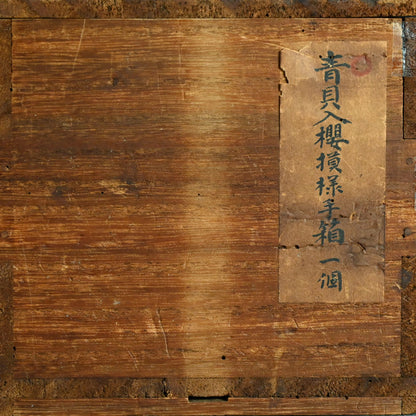 青貝入櫻模様手箱 一個